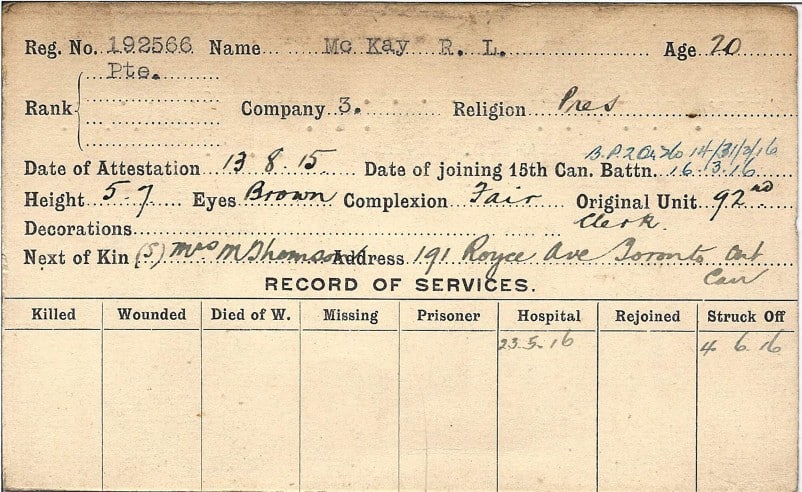 Reg. No. 192566 Name Mc Kay R. L. Age 20
Pte.
Rank Company 3. Religion Pres
B.P.2 14/31/3/16
Date of Attestation 13 8 15. Date of joining 15th Can. Battn. 16.3.16
Height 5-7 Eyes Brown Complexion Fair Original Unit 92nd
Decorations Clerk.
Next of Kin (S) Mrs M Thomson Address 191 Royce Ave Toronto Ont
Can
RECORD OF SERVICES.
Killed Wounded Died of W. Missing Prisoner Hospital Rejoined Struck Off
23.5.16 4 6.16